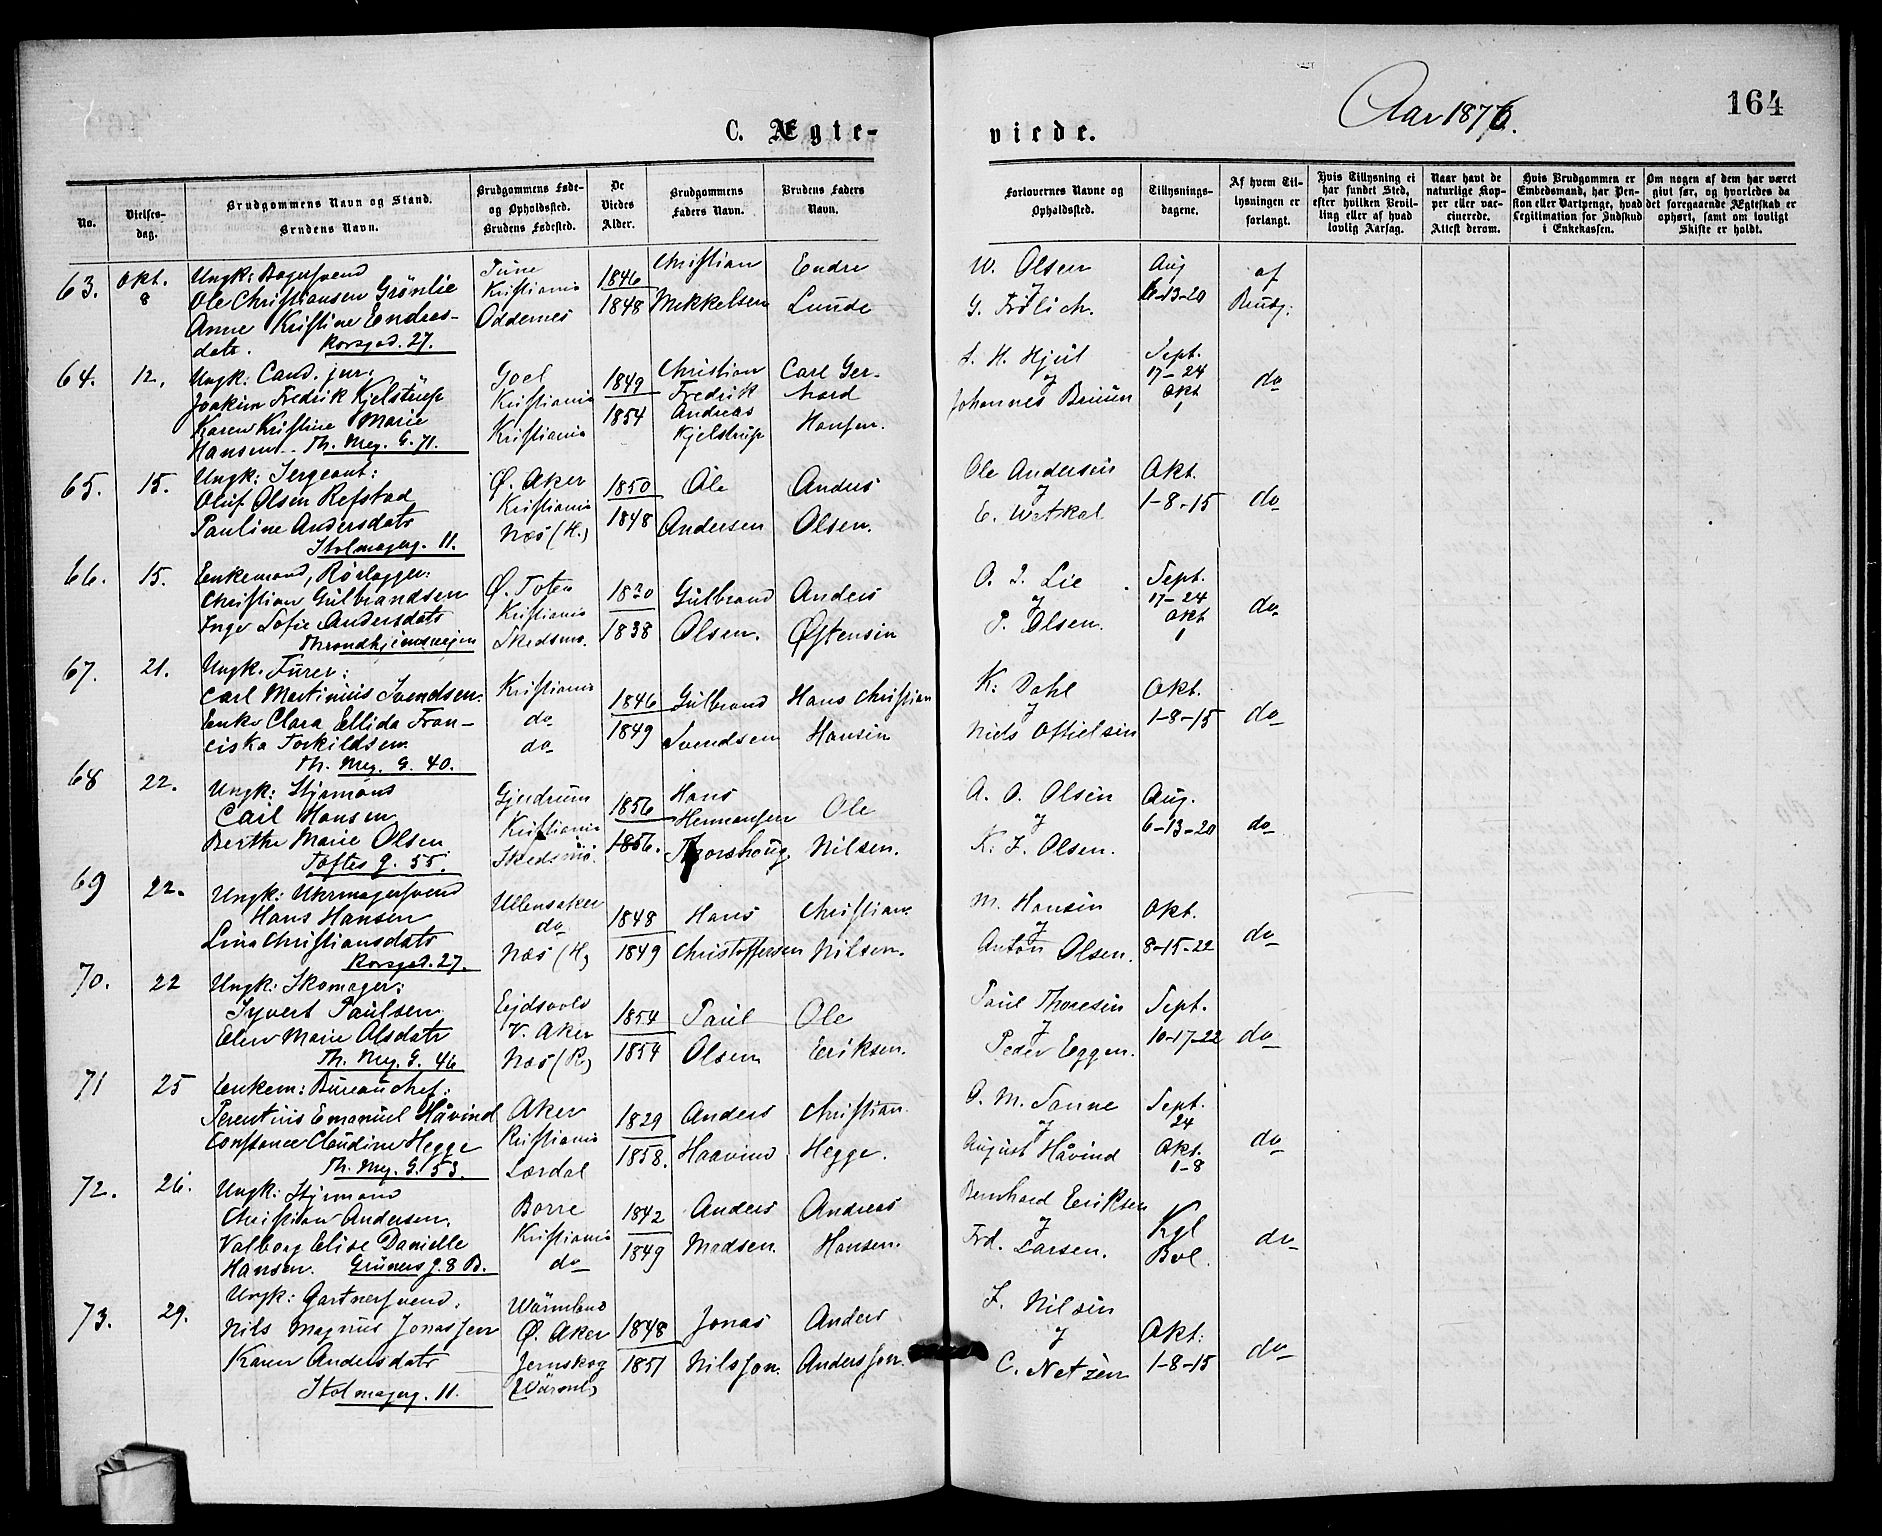 Aar 1876.
164
C. Ægte-
viede.
No.
Vielses-
dag.
Brudgommens Navn og Stand.
Brudens Navn.
Brudgommens Føde-
og Opholdssted.
Brudens Fødested.
De
Viedes
Alder.
Brudgommens
Faders Navn.
Brudens Faders
Navn.
Forlovernes Navne og
Opholdssted.
Tillysnings-
dagene.
Af hvem Til-
lysningen er
forlangt.
Hvis Tillysning ei
har fundet Sted,
efter hvilken Bevil-
ling eller af hvad
lovlig Aarsag.
Naar havt de
naturlige Kop-
per eller vac-
cinerede.
Attest derom.
Hvis Brudgommen er
Embedsmand, har Pen-
sion eller Vartpenge, hvad
Legitimation for Indskud
i Enkekassen.
Om nogen af dem har været
givt før, og hvorledes da
det foregaaende Ægteskab er
ophørt, samt om lovligt
Skifte er holdt.
63.
Okt.
8
Ungk: Bagersvend
Ole Christiansen Grønlie
Anne Kristine Endres-
datr.
Korsgad. 27.
Tune
Kristiania
Oddernes
1846
1848
Christian
Mikkelsen
Endre
Lunde
W. Olsen
G. Frölich.
Aug
6-13-20
af
Brudg:
64.
12.
Ungk: Cand. jur:
Joakim Fredrik Kjelstrup
Karen Kristine Marie
Hansen. Th. Mey. G. 71.
Goel
Kristiania
Kristiania
1849
1854
Christian
Fredrik
Andreas
Kjelstrup
Carl Ger-
hard
Hansen.
S. H. Hjul
Johannes Bruun
Sept.
17-24
Okt
1
do
65.
15.
Ungk: Sergeant:
Oluf Olsen Refstad
Pauline Andersdatr
Stolmagerg. 11.
Ø. Aker
Kristiania
Næs (H.)
1850
1848
Ole
Andersen
Anders
Olsen.
Ole Andersen
Okt.
1-8-15
do
66.
15.
Enkemand, Rørlægger:
Christian Gulbrandsen
Inge Sofie Andersdatr
Throndhjemsvejen
Ø. Toten
Kristiania
Skedsmo.
1830
1838
Gulbrand
Olsen.
Anders
Østensen
O. J. Lie
P. Olsen.
Sept.
17-24
Okt
1
do
67.
21.
Ungk. Furer:
Carl Martinius Svendsen.
Enke Clara Ellida Fran-
ciska Torkildsen.
Th. Mey. G. 40.
Kristiania
do
do
1846
1849
Gulbrand
Svendsen
Hans Christian
Hansen
K: Dahl
Niels
Okt.
1-8-15
do
68
22.
Ungk: Styrmand
Carl Hansen
Berthe Marie Olsen
Toftes g. 55.
Gjerdrum
Kristiania
Skedsmo.
1856
1856.
Hans
Hermansen
Thorshaug.
Ole
Nilsen.
A. O. Olsen
K. J. Olsen.
Aug.
6-13-20
do
69
22.
Ungk: Uhrmagersvend
Hans Hansen
Lina Christiansdatr
Korsgad. 27.
Ullensaker
do
Næs (H.)
1848
1849
Hans
Christoffersen
Christian
Nilsen.
M. Hansen
Anton Olsen.
Okt.
8-15-22
do
70.
22
Ungk: Skomager:
Syvert Paulsen
Elen Marie Olsdatr
Th. Mey. G. 46
Eidsvold
V. Aker
Næs (R.)
1854
1854
Paul
Olsen
Ole
Eriksen.
Paul Thoresen
Peder Eggen.
Sept.
10-17-22
do
71
25
Enkem: Bureauchef:
Terentius Emanuel Håvind
Constance Claudine Hegge
Th. Mey. G. 53.
Aker
Kristiania
Lærdal
1829
1858.
Anders
Haavind
Christian
Hegge.
O. M. Sanne
August Håvind
Sept.
24
Okt.
1-8
do
72.
26.
Ungk: Styrmand
Christian Andersen,
Valborg Elise Danielle
Hansen. Grüners g. 8 B.
Borre
Kristiania
do
1842
1849
Anders
Madsen.
Andreas
Hansen.
Bernhard Eriksen
Frd. Larsen.
Kgl
Bvl.
do
73.
29.
Ungk: Gartnersvend.
Nils Magnus Jonassen
Karen Andersdatr
Stolmagerg. 11.
Wärmland
Ø. Aker
Jernskog
1848
1851
Jonas
Nilsson.
Anders
Andersson.
J. Nilsen
C. Netzén
Okt:
1-8-15
do